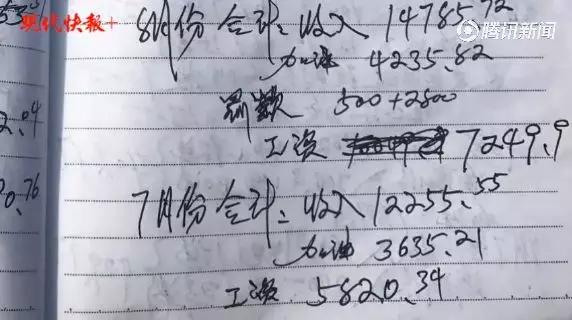 现代快报+
腾讯新闻
8月份合计:收入 14785.72
加油 4235.82
罚款 500+2800
2.04
工资 7249.9
0.76
7月份合计:收入 12255.55
加油 3635.21
工资 5820.34